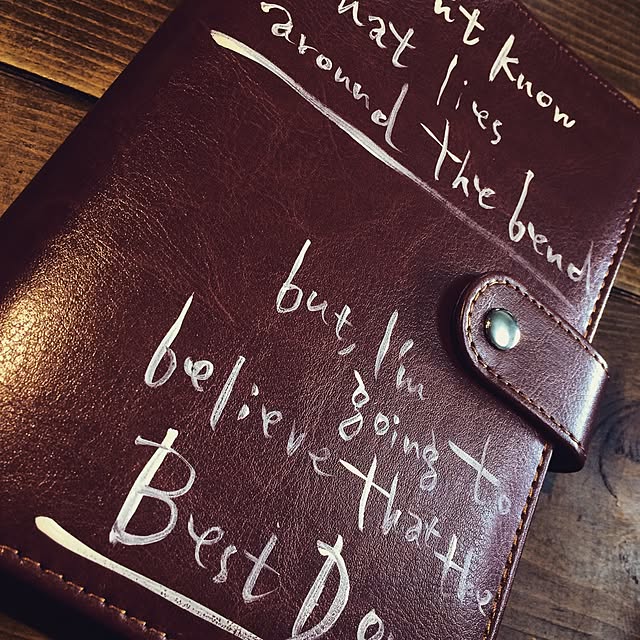 know
lies
around the bend
but, I'm
going to
believe that the
Best